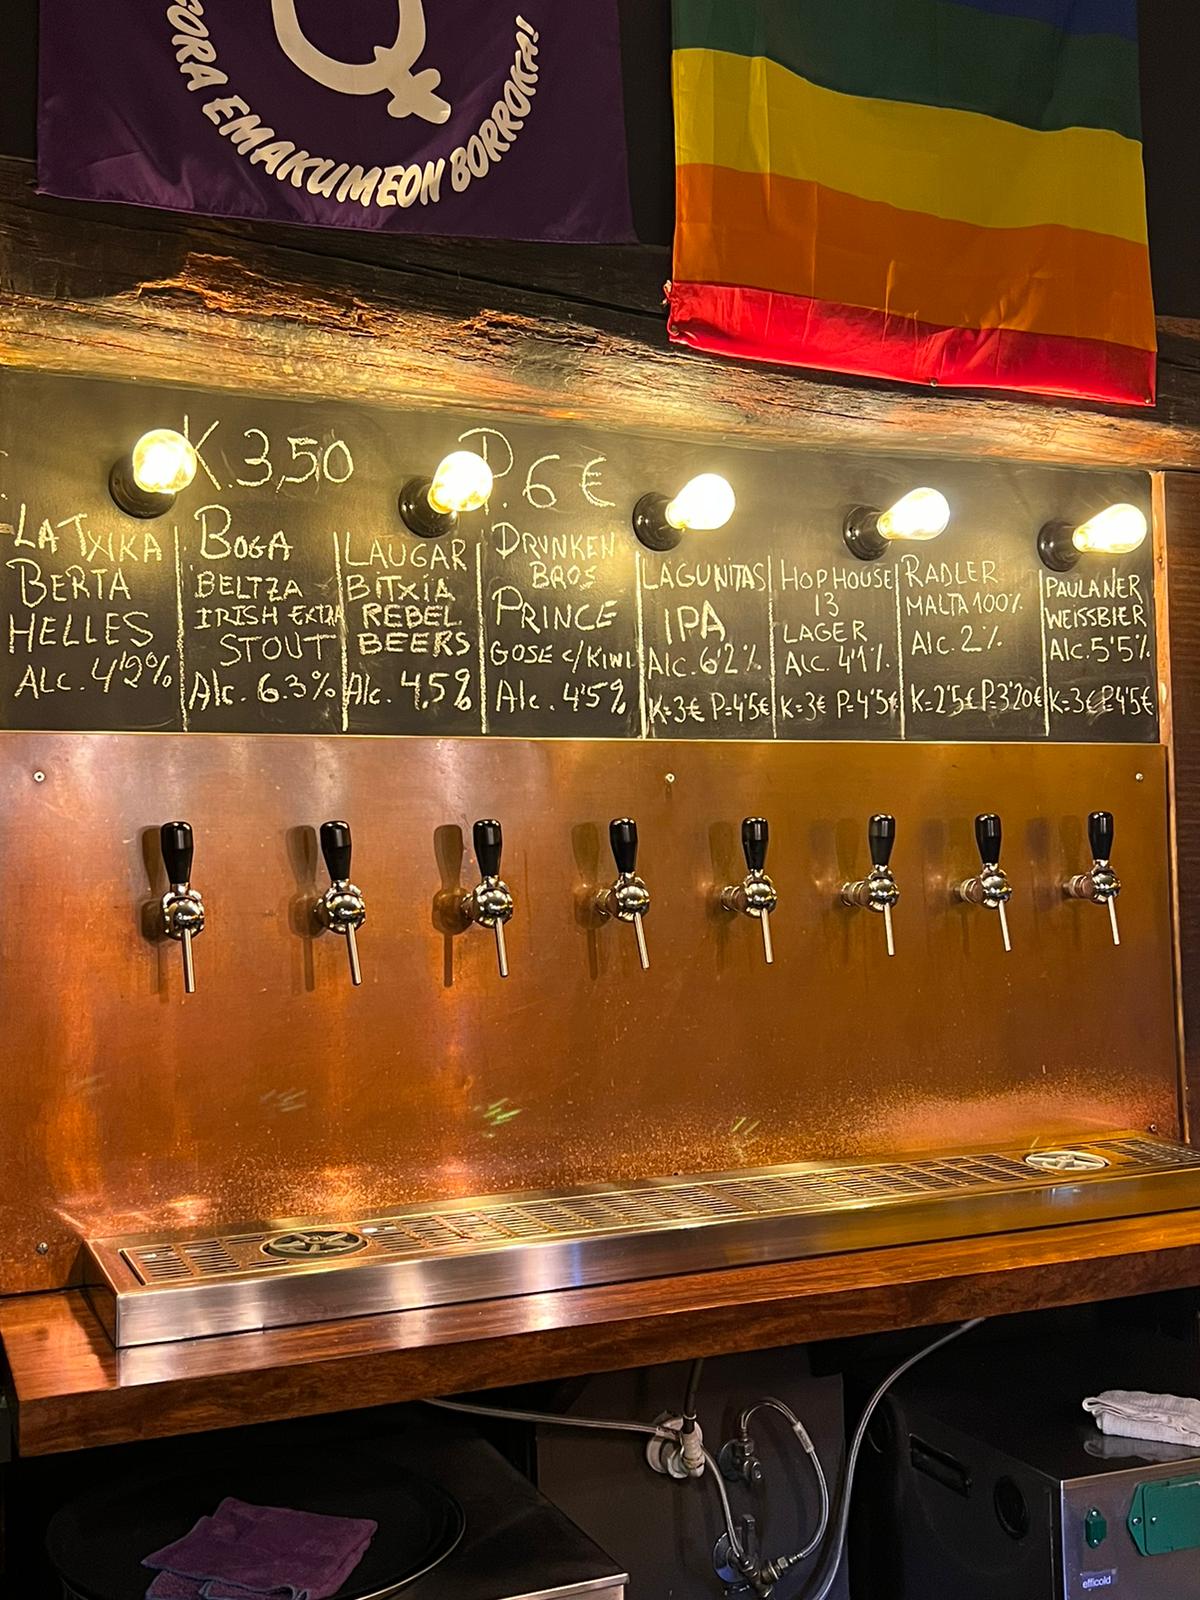 GORA EMAKUMEON BORROKA!
K. 3,50
P. 6 €
LA TXIKA
BERTA
HELLES
Alc. 4'9%
BOGA
BELTZA
IRISH EXTRA
STOUT
Alc. 6.3%
LAUGAR
BITXIA
REBEL
BEERS
Alc. 4.5%
DRUNKEN
BROS
PRINCE
GOSE C/KIWI
Alc. 4'5%
LAGUNITAS
IPA
Alc. 6'2%
K=3€ P=4'5€
HOP HOUSE
13
LAGER
Alc. 4'1%
K=3€ P=4'5€
RADLER
MALTA 100%
Alc. 2%
K=2'5€ P=3'20€
PAULANER
WEISSBIER
Alc. 5'5%
K=3€ P=4'5€
efficold